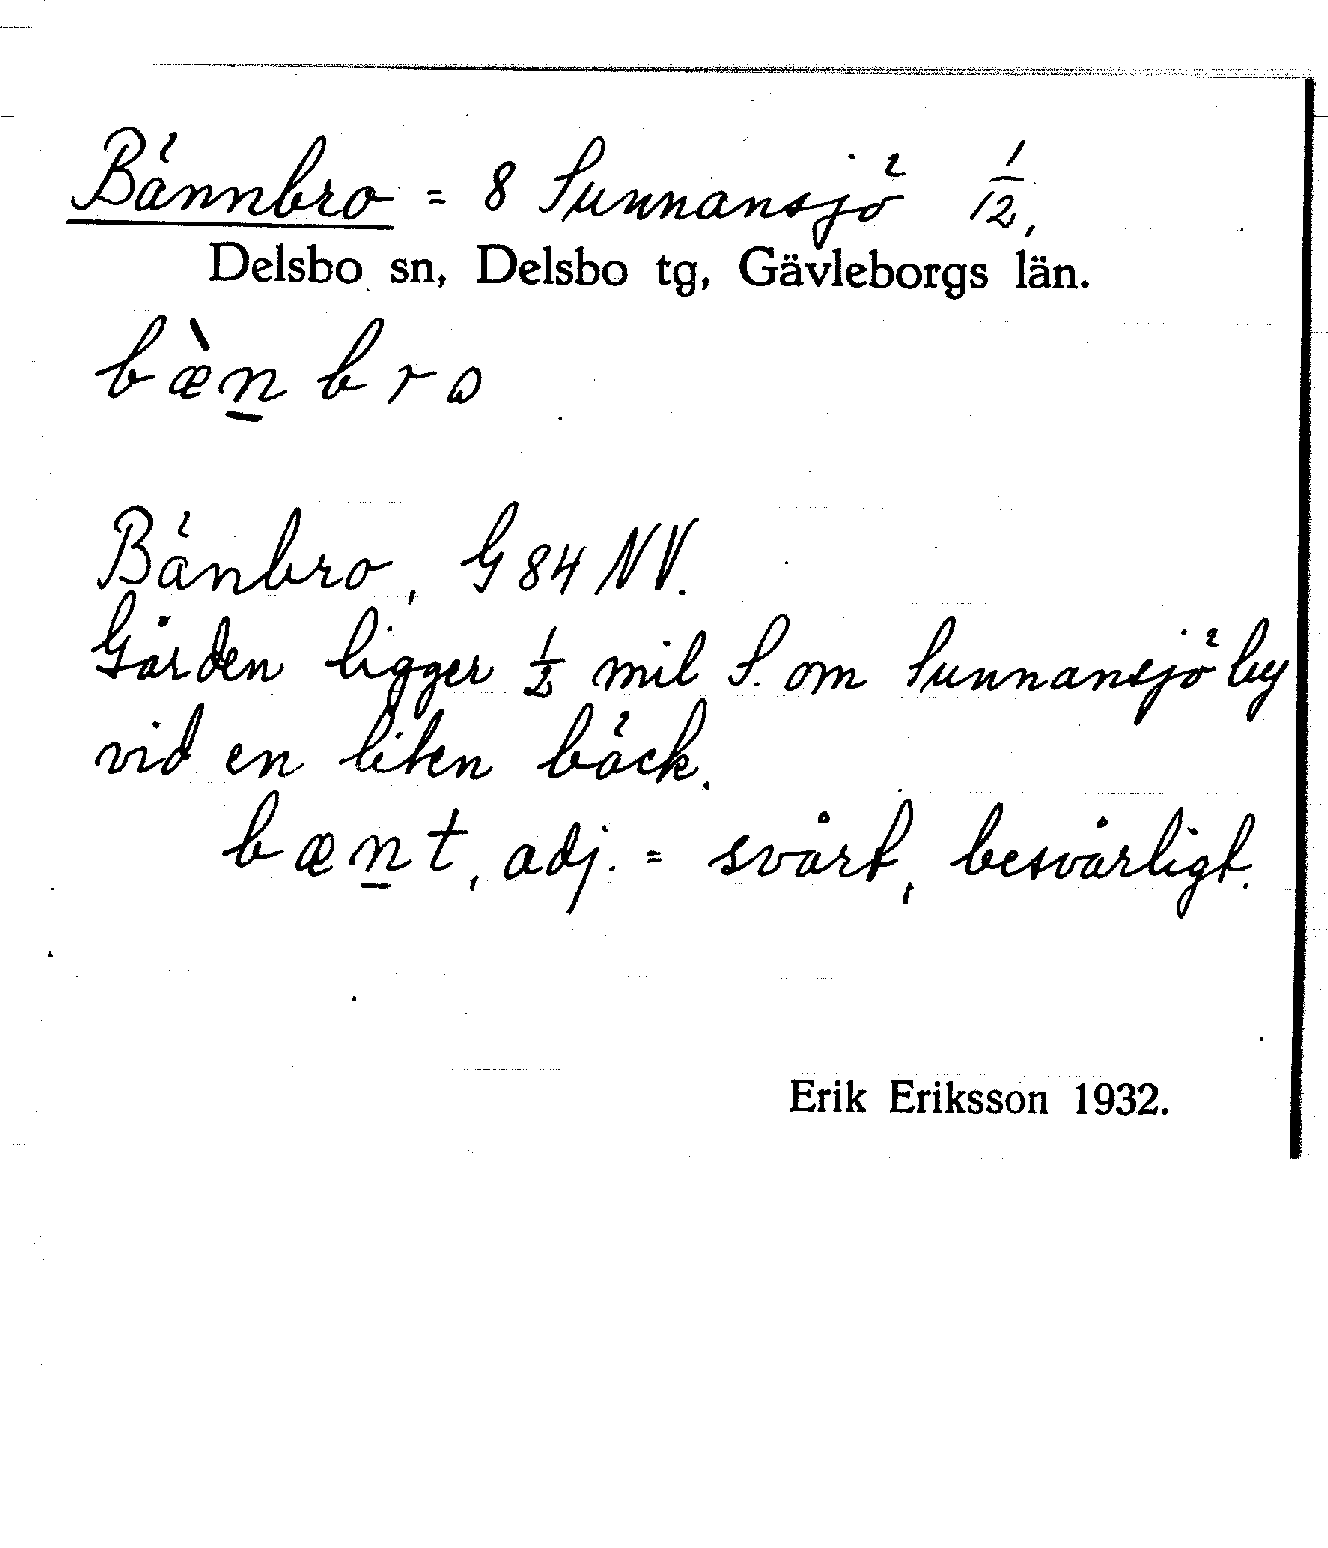 Bännbro = 8 Sunnansjö 1/12,
Delsbo sn, Delsbo tg, Gävleborgs län.
bæ̀n̲bro
Bänbro, G 84 NV.
Gården ligger 1/2 mil S. om Sunnansjö by
vid en liten bäck.
bæn̲t, adj. = svårt, besvärligt.
Erik Eriksson 1932.